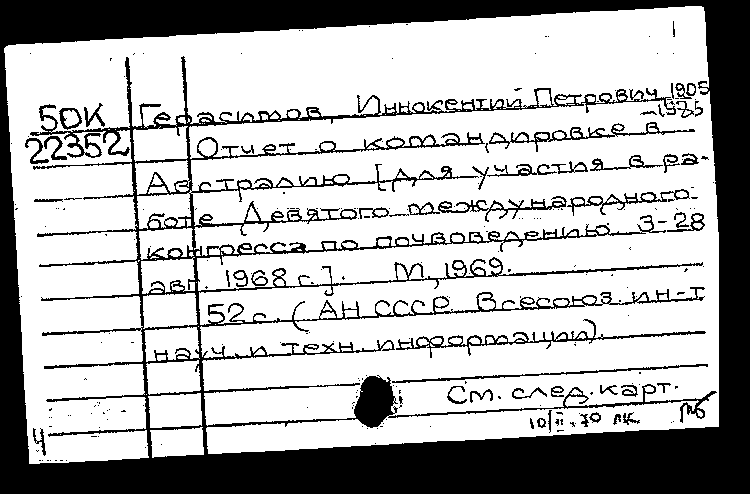 50К Герасимов, Иннокентий Петрович 1905
22352 -1985
Отчет о командировке в
Австралию [для участия в ра-
боте Девятого международного
конгресса по почвоведению 3-28
авг. 1968 г.]. М., 1969.
52 с. (АН СССР. Всесоюз. ин-т
науч. и техн. информации).
См. след. карт.
10/II.70